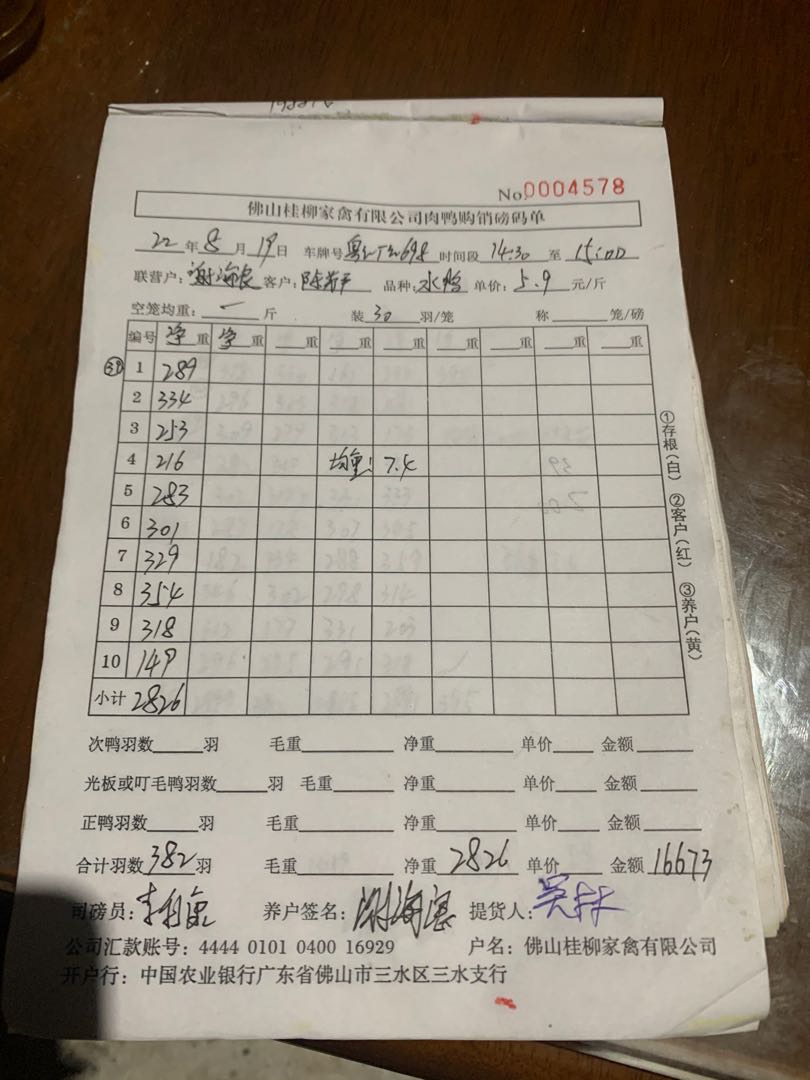 No.0004578
佛山桂柳家禽有限公司肉鸭购销磅码单
22年8月19日 车牌号 时间段14:30至15:00
联营户: 客户: 品种:水鸭 单价:5.9元/斤
空笼均重:一斤 装30羽/笼 称 笼/磅
编号 净重 净重 重 重 重 重 重 重 重
1 289
2 334
3 253
4 216 均重:7.4
5 283
6 301
7 329
8 354
9 318
10 149
小计 2826
①存根(白) ②客户(红) ③养户(黄)
次鸭羽数 羽 毛重 净重 单价 金额
光板或叮毛鸭羽数 羽 毛重 净重 单价 金额
正鸭羽数 羽 毛重 净重 单价 金额
合计羽数382羽 毛重 净重2826 单价 金额16673
司磅员: 养户签名: 提货人:
公司汇款账号:4444 0101 0400 16929 户名:佛山桂柳家禽有限公司
开户行:中国农业银行广东省佛山市三水区三水支行